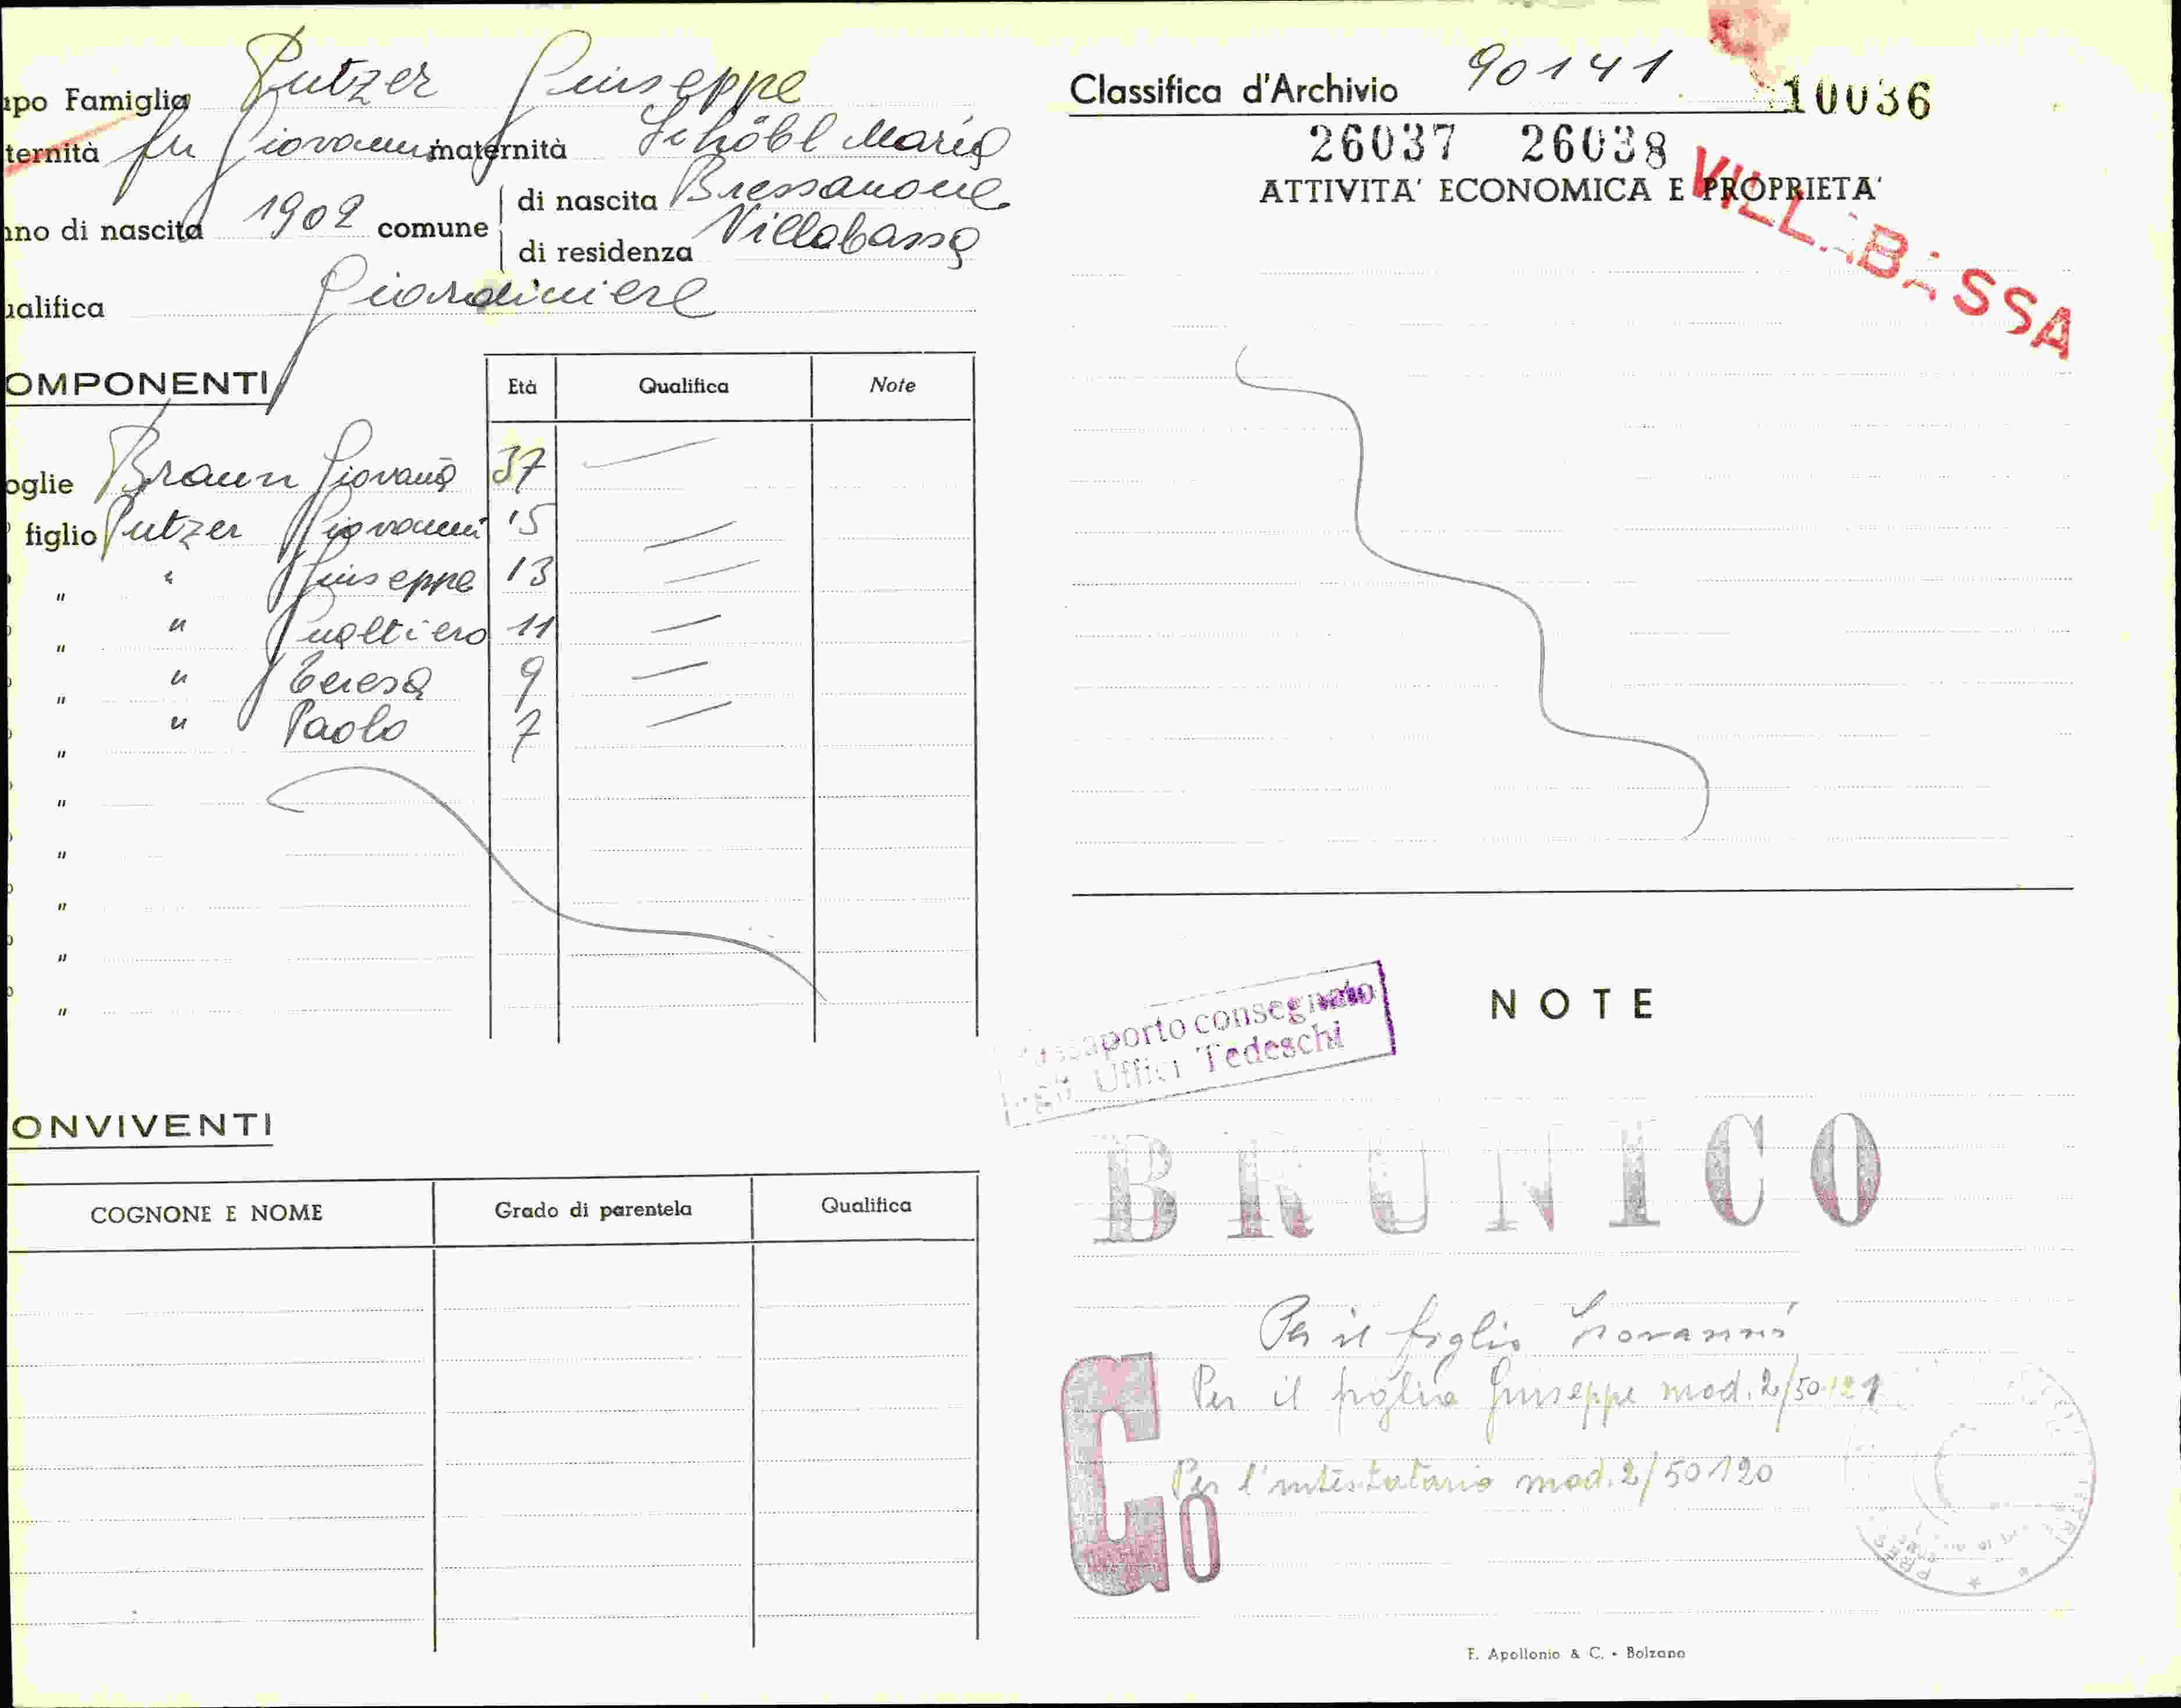 apo Famiglia Putzer Giuseppe
ternità fu Giovanni maternità Schöbl Maria
nno di nascita 1902 comune di nascita Bressanone
di residenza Villabassa
ualifica Giardiniere
OMPONENTI Età Qualifica Note
oglie Braun Giovana 37
figlio Putzer Giovanni 15
" " Giuseppe 13
" " Gualtiero 11
" " Teresa 9
" " Paolo 7
"
"
"
"
"
ONVIVENTI
COGNONE E NOME Grado di parentela Qualifica
Classifica d'Archivio 90141 10036
26037 26038
VILLABASSA
ATTIVITA' ECONOMICA E PROPRIETA'
NOTE
Passaporto consegnato
Uffici Tedeschi
BRUNICO
Per il figlio Giovanni
Per il figlio Giuseppe mod. 2/50121
Per l'intestatario mod. 2/50120
G0
F. Apollonio & C. - Bolzano